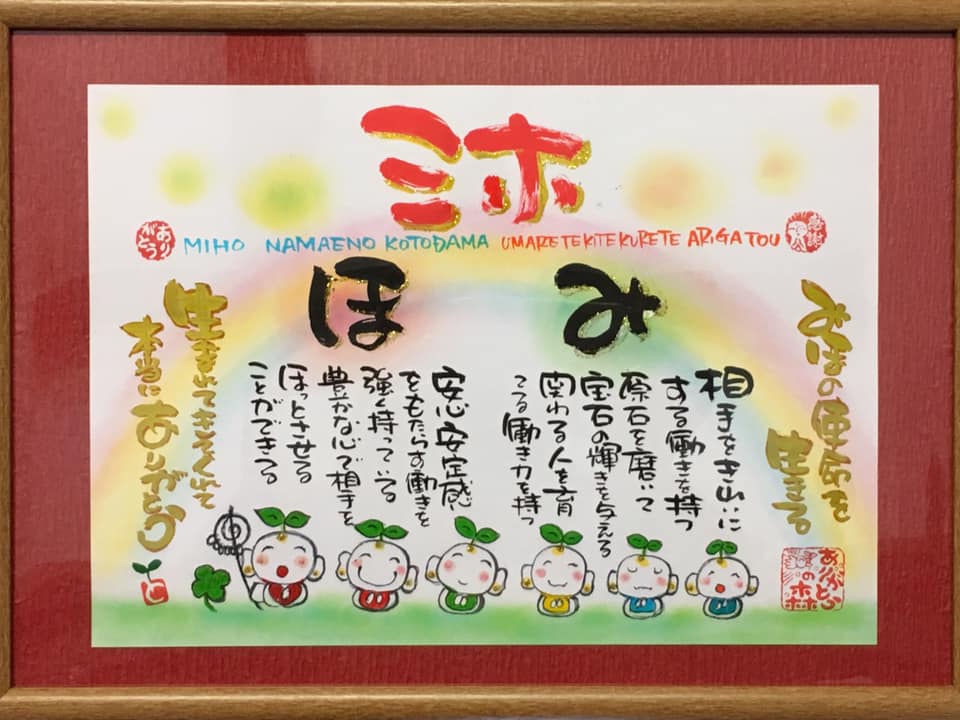 ミホ
ありがとう
MIHO NAMAENO KOTODAMA UMARETEKITEKURETE ARIGATOU
感謝
みほの使命を
生きる
み
相手をきれいに
する働きを持つ
原石を磨いて
宝石の輝きを与える
関わる人を育
てる働き力を持つ
ほ
安心安定感
をもたらす働きを
強く持っている
豊かな心で相手を
ほっとさせる
ことができる
生まれてきてくれて
本当にありがとう
ありがとう
の森